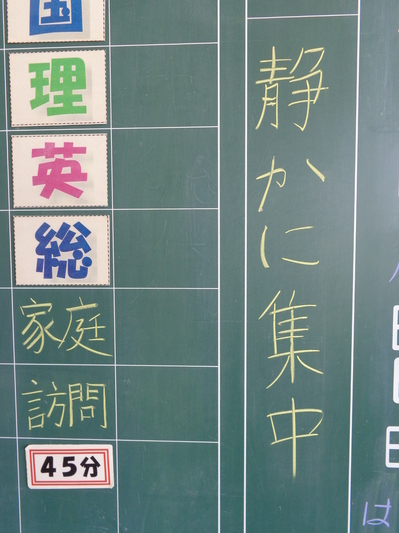 静かに集中
国
理
英
総
家庭
訪問
45分
は